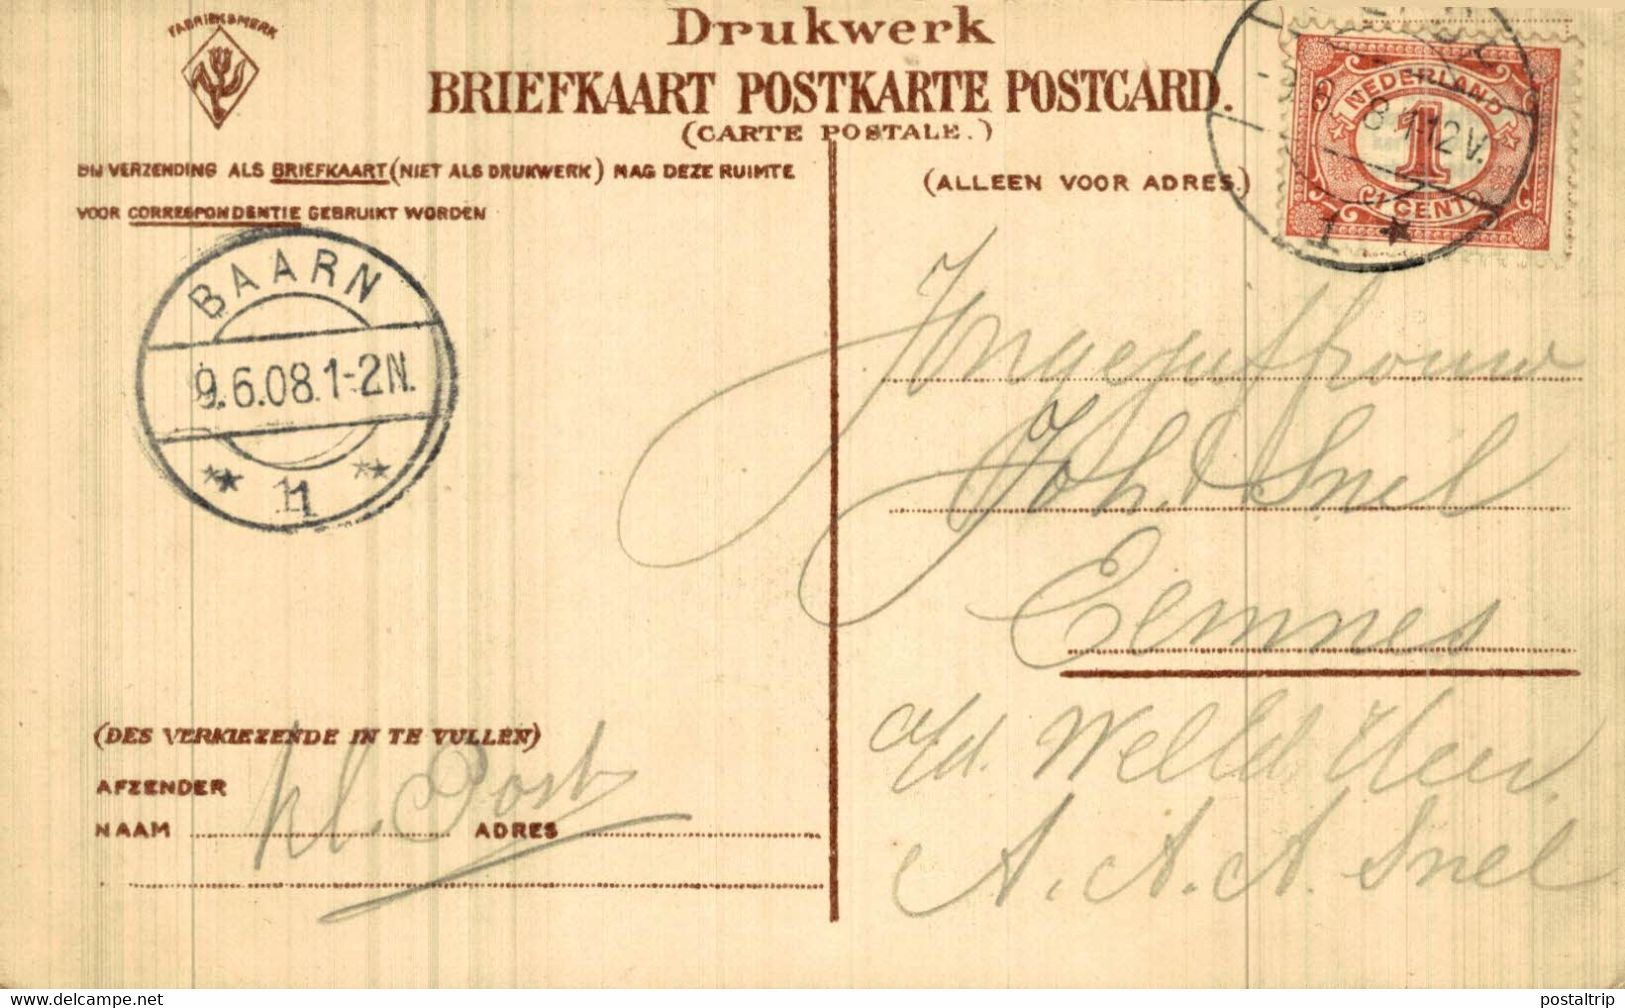 FABRIEKSMERK
Drukwerk
BRIEFKAART POSTKARTE POSTCARD.
(CARTE POSTALE.)
BIJ VERZENDING ALS BRIEFKAART (NIET ALS DRUKWERK) MAG DEZE RUIMTE
VOOR CORRESPONDENTIE GEBRUIKT WORDEN
(ALLEEN VOOR ADRES.)
NEDERLAND
1
CENT
8 1-12 V.
1
BAARN
9.6.08.1-2N.
11
Joh. Snel
Eemnes
A. A. A. Snel
(DES VERKIEZENDE IN TE VULLEN)
AFZENDER
NAAM ADRES
kl. Post
www.delcampe.net
postaltrip